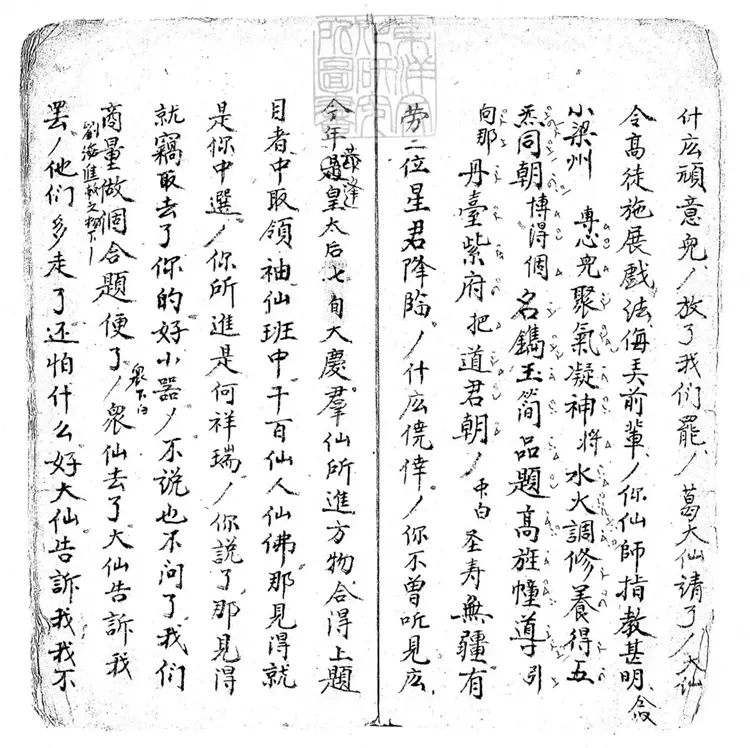 什庅頑意兒／放了我们罷／葛大仙請了／大仙
令高徒施展戲法侮弄前輩／你仙師指教甚明 合
小梁州 專心兒聚氣凝神將水火調修養得五
炁同朝博得個名鐫玉简品題高旌幢導引
向那丹臺紫府把道君朝／丙白 圣寿無疆有
劳二位星君降临／什庅侥倖／你不曾听見庅
今年恭逢皇太后七旬大慶羣仙所進方物合得上題
目者中取領袖仙班中千百仙人仙佛那見得就
是你中選／你所進是何祥瑞／你說了那見得
就竊取去了你的好小器／不説也不问了我们
商量做個合題便了／衆下白 衆仙去了大仙告訴我
劉海進献之物下
罢／他们多走了还怕什么好大仙告訴我我不